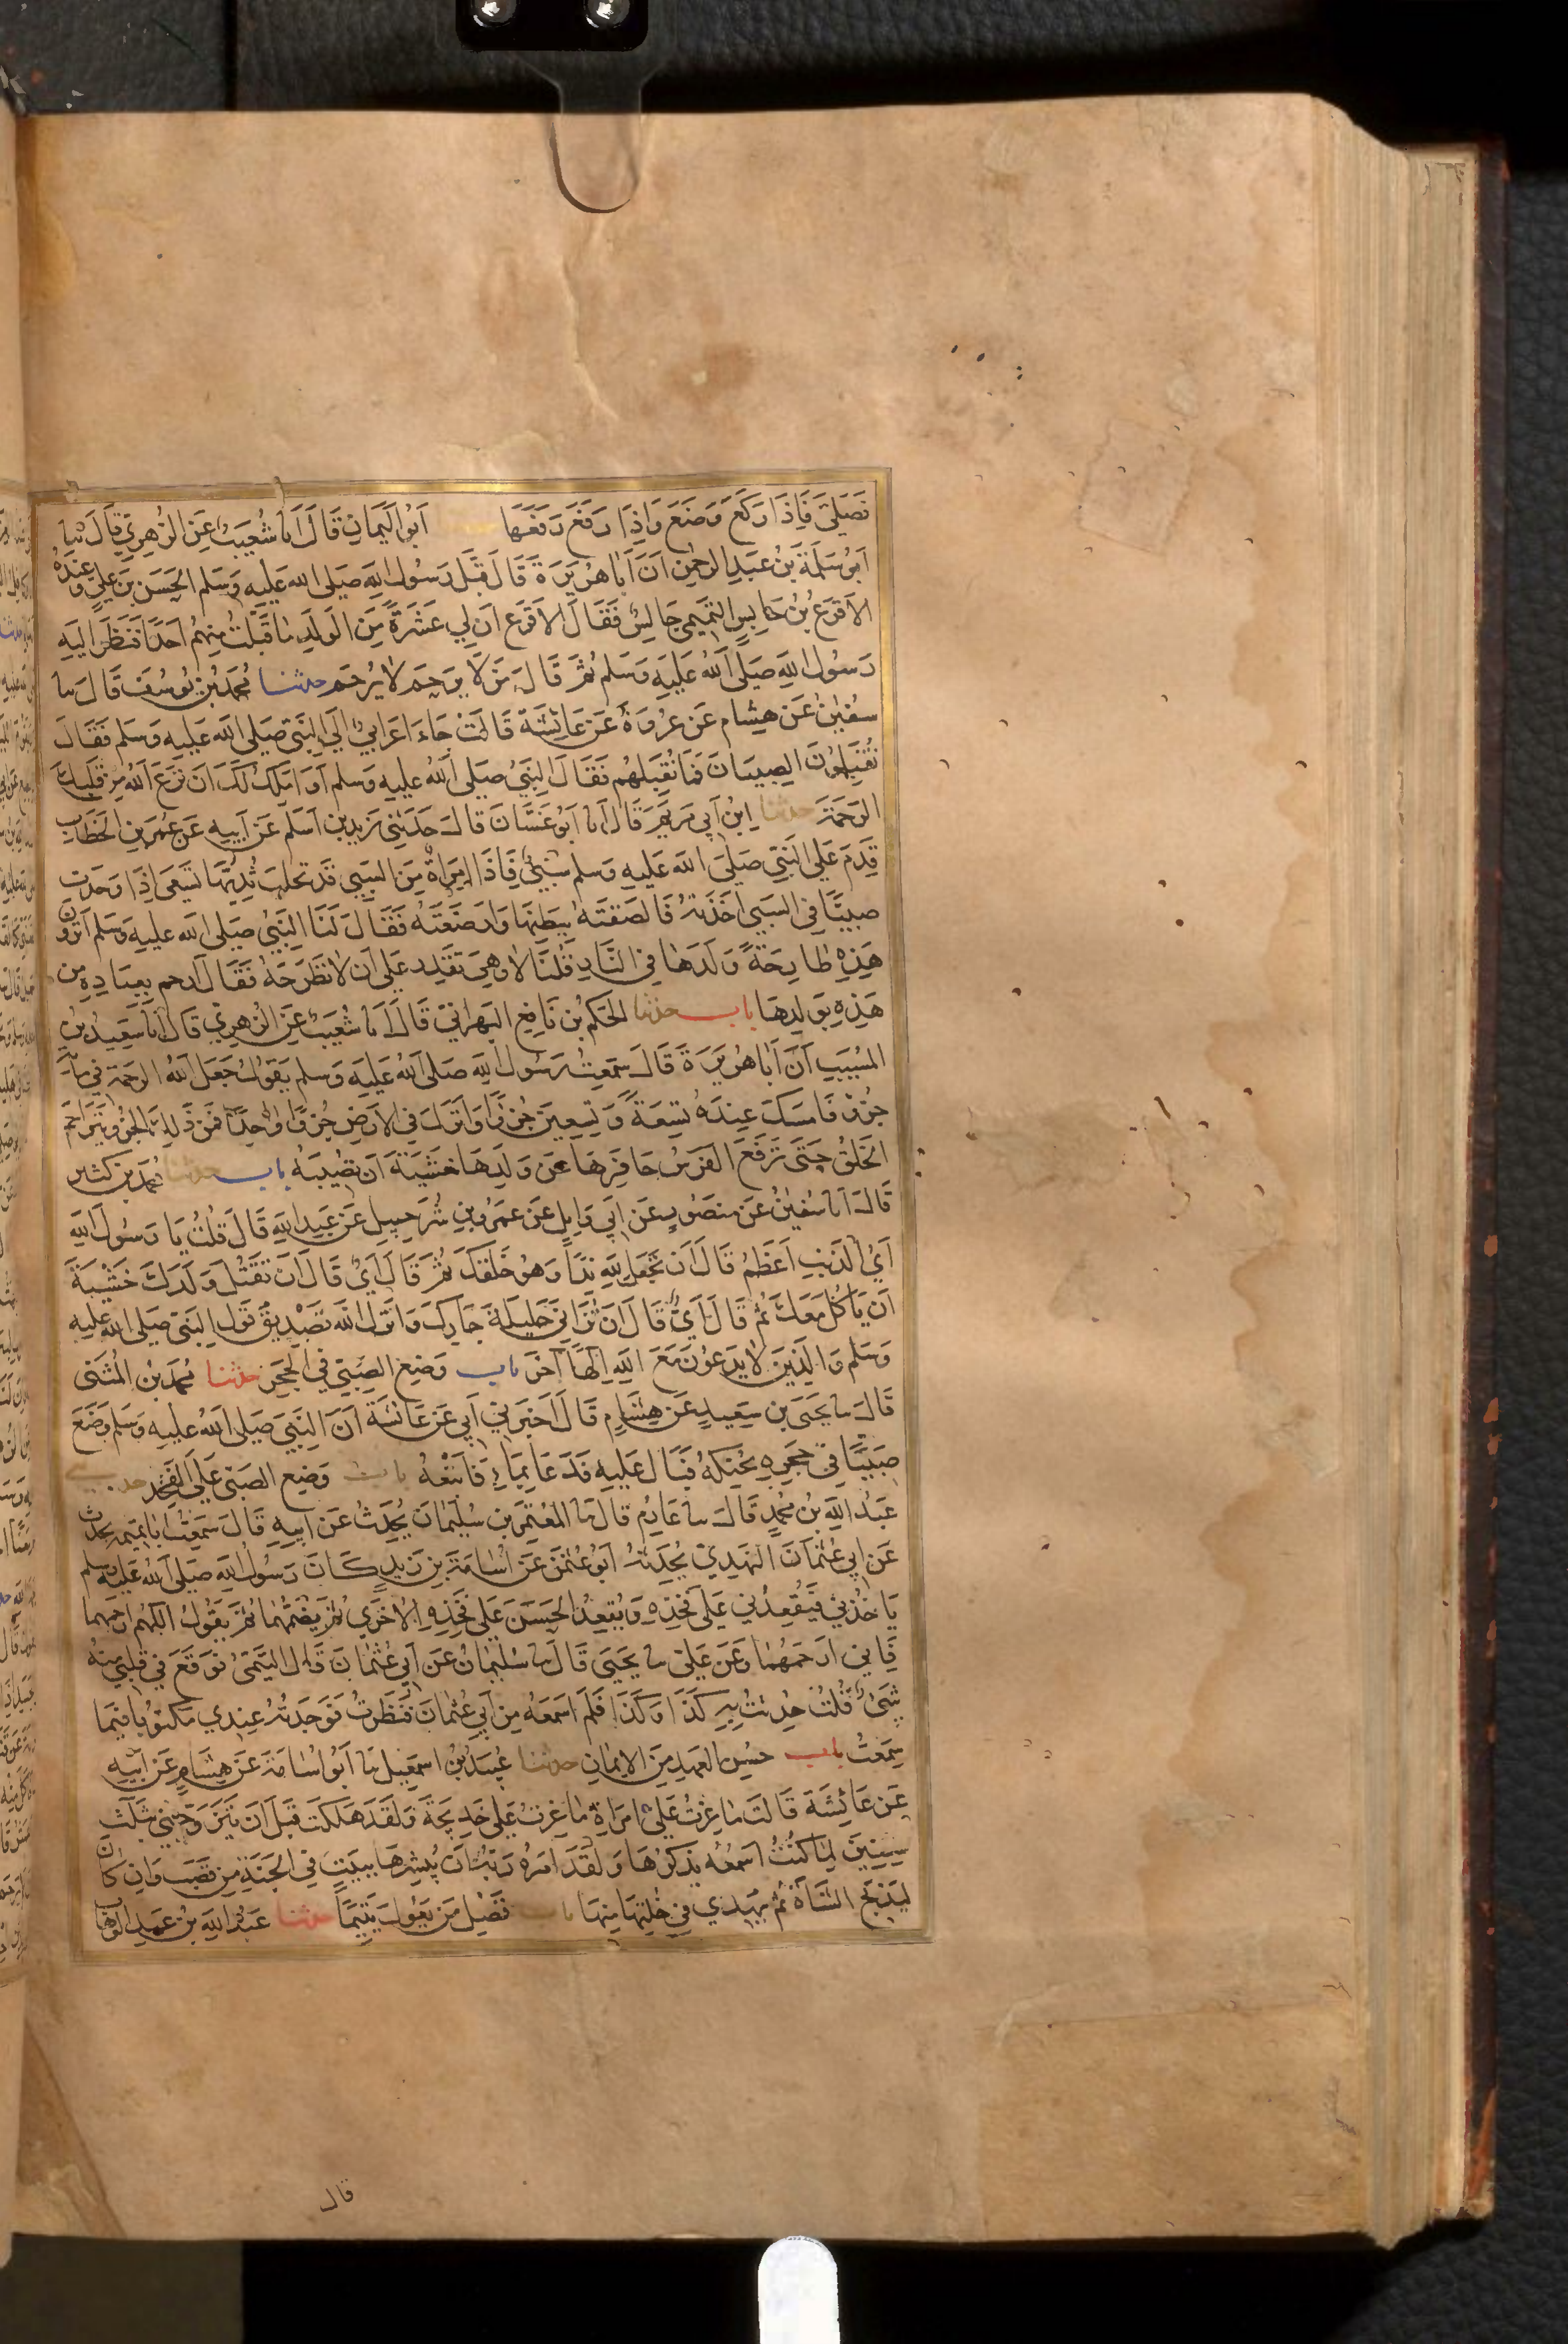 فَصَلَّى فَاِذَا رَكَعَ وَضَعَ وَاِذَا رَفَعَ رَفَعَهَا اَبُو الْيَمَانِ قَالَ اَنا شُعَيْبٌ عَنِ الزُّهْرِيِّ قَالَ ثنا
اَبُو سَلَمَةَ بْنُ عَبْدِ الرَّحْمٰنِ اَنَّ اَبَا هُرَيْرَةَ قَالَ قَبَّلَ رَسُولُ اللهِ صَلَّى اللهُ عَلَيْهِ وَسَلَّم الحَسَنَ بْنَ عَلِيٍّ وَعِنْدَهُ
الاَقْرَعُ بْنُ حَابِسٍ التَّمِيمِي جَالِسٌ فَقَالَ الاَقْرَع اِنَّ لِي عَشَرَةً مِّنَ الوَلَدِ مَا قَبَّلْتُ مِنْهُمْ اَحَدًا فَنَظَرَ اِلَيْهِ
رَسُولُ اللهِ صَلَّى اللهُ عَلَيْهِ وَسَلَّم ثُمَّ قَالَ مَنْ لَّا يَرحَم لا يُرحَم حدثنا مُحَمَّدُ بْنُ يُوسُفَ قَالَ نا
سُفْيٰنُ عَنْ هِشَامٍ عَنْ عُرْوَةَ عَنْ عَائِشَةَ قَالَتْ جَاءَ اَعْرَابِيٌّ اِلَى النَّبِيِّ صَلَّى اللهُ عَلَيْهِ وَسَلَّم فَقَالَ
تُقَبِّلُونَ الصِّبْيَانَ فَمَا نُقَبِّلُهُم فَقَالَ النَّبِيُّ صَلَّى اللهُ عَلَيْهِ وَسَلَّم اَوَ اَمْلِكُ لَكَ اَنْ نَزَعَ اللهُ مِنْ قَلْبِكَ
الرَّحْمَةَ حدثنا ابْنُ اَبِي مَرْيَمَ قَالَ اَنا اَبُو غَسَّانَ قَالَ حَدَّثَنِي زَيْدُ بْنُ اَسْلَمَ عَنْ اَبِيهِ عَنْ عُمَرَ بْنِ الخَطَّابِ
قَدِمَ عَلَى النَّبِيِّ صَلَّى اللهُ عَلَيْهِ وَسَلَّم سَبْيٌ فَاِذَا امْرَاَةٌ مِنَ السَّبْيِ قَدْ تَحْلُبُ ثَدْيَهَا تَسْعَى اِذَا وَجَدَتْ
صَبِيًّا فِي السَّبْيِ اَخَذَتْهُ فَاَلْصَقَتْهُ بِبَطْنِهَا وَاَرْضَعَتْهُ فَقَالَ لَنَا النَّبِيُّ صَلَّى اللهُ عَلَيْهِ وَسَلَّم اَتَرَوْنَ
هَذِهِ طَارِحَةً وَلَدَهَا فِي النَّارِ قُلْنَا لَا وَهِيَ تَقْدِرُ عَلَى اَنْ لَا تَطْرَحَهُ فَقَالَ اَرحم بِعِبَادِهِ مِن
هَذِهِ بِوَلَدِهَا باب حدثنا الحَكَمُ بْنُ نَافِعٍ البَهْرَانِيُّ قَالَ اَنا شُعَيْبٌ عَنِ الزُّهْرِيِّ قَالَ اَنا سَعِيدُ بْنُ
المُسَيَّبِ اَنَّ اَبَا هُرَيْرَةَ قَالَ سَمِعْتُ رَسُولَ اللهِ صَلَّى اللهُ عَلَيْهِ وَسَلَّم يَقُولُ جَعَلَ اللهُ الرَّحمَةَ فِي مِائَةِ
جُزْءٍ فَاَمْسَكَ عِنْدَهُ تِسْعَةً وَتِسْعِينَ جُزْءًا وَاَنْزَلَ فِي الاَرْضِ جُزْءًا وَاحِدًا فَمِنْ ذَلِكَ الجُزْءِ يَتَرَاحَمُ
الخَلْقُ حَتَّى تَرْفَعَ الفَرَسُ حَافِرَهَا عَنْ وَلَدِهَا خَشْيَةَ اَنْ تُصِيبَهُ باب حدثنا مُحَمَّدُ بْنُ كَثِيرٍ
قَالَ اَنا سُفْيٰنُ عَنْ مَنْصُورٍ عَنْ اَبِي وَايِلٍ عَنْ عَمْرِو بْنِ شُرَحبِيلَ عَنْ عَبْدِ اللهِ قَالَ قُلْتُ يَا رَسُولَ اللهِ
اَيُّ الذَّنْبِ اَعْظَمُ قَالَ اَنْ تَجْعَلَ لِلهِ نِدًّا وَهُوَ خَلَقَكَ ثُمَّ قَالَ اَيُّ قَالَ اَنْ تَقْتُلَ وَلَدَكَ خَشْيَةَ
اَنْ يَاْكُلَ مَعَكَ ثُمَّ قَالَ اَيُّ قَالَ اَنْ تُزَانِيَ حَلِيلَةَ جَارِكَ وَاَنْزَلَ اللهُ تَصْدِيقَ قَوْلِ النَّبِيِّ صَلَّى اللهُ عَلَيْهِ
وَسَلَّم وَالَّذِينَ لَا يَدْعُونَ مَعَ اللهِ اِلٰهًا آخَرَ باب وَضْعِ الصَّبِيِّ فِي الحِجْرِ حدثنا مُحَمَّدُ بْنُ المُثَنَّى
قَالَ نا يَحْيَى بْنُ سَعِيدٍ عَنْ هِشَامٍ قَالَ اَخْبَرَنِي اَبِي عَنْ عَائِشَةَ اَنَّ النَّبِيَّ صَلَّى اللهُ عَلَيْهِ وَسَلَّم وَضَعَ
صَبِيًّا فِي حِجْرِهِ يُحَنِّكُهُ فَبَالَ عَلَيْهِ فَدَعَا بِمَاءٍ فَاَتْبَعَهُ باب وَضْعِ الصَّبِيِّ عَلَى الفَخِذِ
عَبْدُ اللهِ بْنُ مُحَمَّدٍ قَالَ نا عَارِمٌ قَالَ نا المُعْتَمِرُ بْنُ سُلَيْمَانَ يُحَدِّثُ عَنْ اَبِيهِ قَالَ سَمِعْتُ اَبَا تَمِيمَةَ يُحَدِّثُ
عَنْ اَبِي عُثْمَانَ النَّهْدِيِّ يُحَدِّثُهُ اَبُو عُثْمٰنَ عَنْ اُسَامَةَ بْنِ زَيْدٍ كَانَ رَسُولُ اللهِ صَلَّى اللهُ عَلَيْهِ وَسَلَّم
يَاْخُذُنِي فَيُقْعِدُنِي عَلَى فَخِذِهِ وَيُقْعِدُ الحَسَنَ عَلَى فَخِذِهِ الاُخْرَى ثُمَّ يَضُمُّهُمَا ثُمَّ يَقُولُ اللّٰهُمَّ ارْحَمْهُمَا
فَاِنِّي اَرْحَمُهُمَا وَعَنْ عَلِيٍّ نا يَحْيَى قَالَ نا سُلَيْمَانُ عَنْ اَبِي عُثْمَانَ قَالَ التَّيْمِيُّ فَوَقَعَ فِي قَلْبِي مِنْهُ
شَيْءٌ قُلْتُ حُدِّثْتُ بِهِ كَذَا وَكَذَا فَلَمْ اَسْمَعْهُ مِنْ اَبِي عُثْمَانَ فَنَظَرْتُ فَوَجَدْتُهُ عِنْدِي مَكْتُوبًا فِيمَا
سَمِعْتُ باب حُسْنُ العَهْدِ مِنَ الاِيمَانِ حدثنا عُبَيْدُ بْنُ اسْمَعِيلَ نا اَبُو اُسَامَةَ عَنْ هِشَامٍ عَنْ اَبِيهِ
عَنْ عَائِشَةَ قَالَتْ مَا غِرْتُ عَلَى امْرَاَةٍ مَا غِرْتُ عَلَى خَدِيجَةَ وَلَقَدْ هَلَكَتْ قَبْلَ اَنْ يَتَزَوَّجَنِي بِثَلٰثِ
سِنِينَ لِمَا كُنْتُ اَسْمَعُهُ يَذْكُرُهَا وَلَقَدْ اَمَرَهُ رَبُّهُ اَنْ يُبَشِّرَهَا بِبَيْتٍ فِي الجَنَّةِ مِنْ قَصَبٍ وَاِنْ كَانَ
لَيَذْبَحُ الشَّاةَ ثُمَّ يُهْدِي فِي خُلَّتِهَا مِنْهَا باب فَضْلِ مَنْ يَعُولُ يَتِيمًا حدثنا عَبْدُ اللهِ بْنُ عَبْدِ الوَهَّابِ
قال